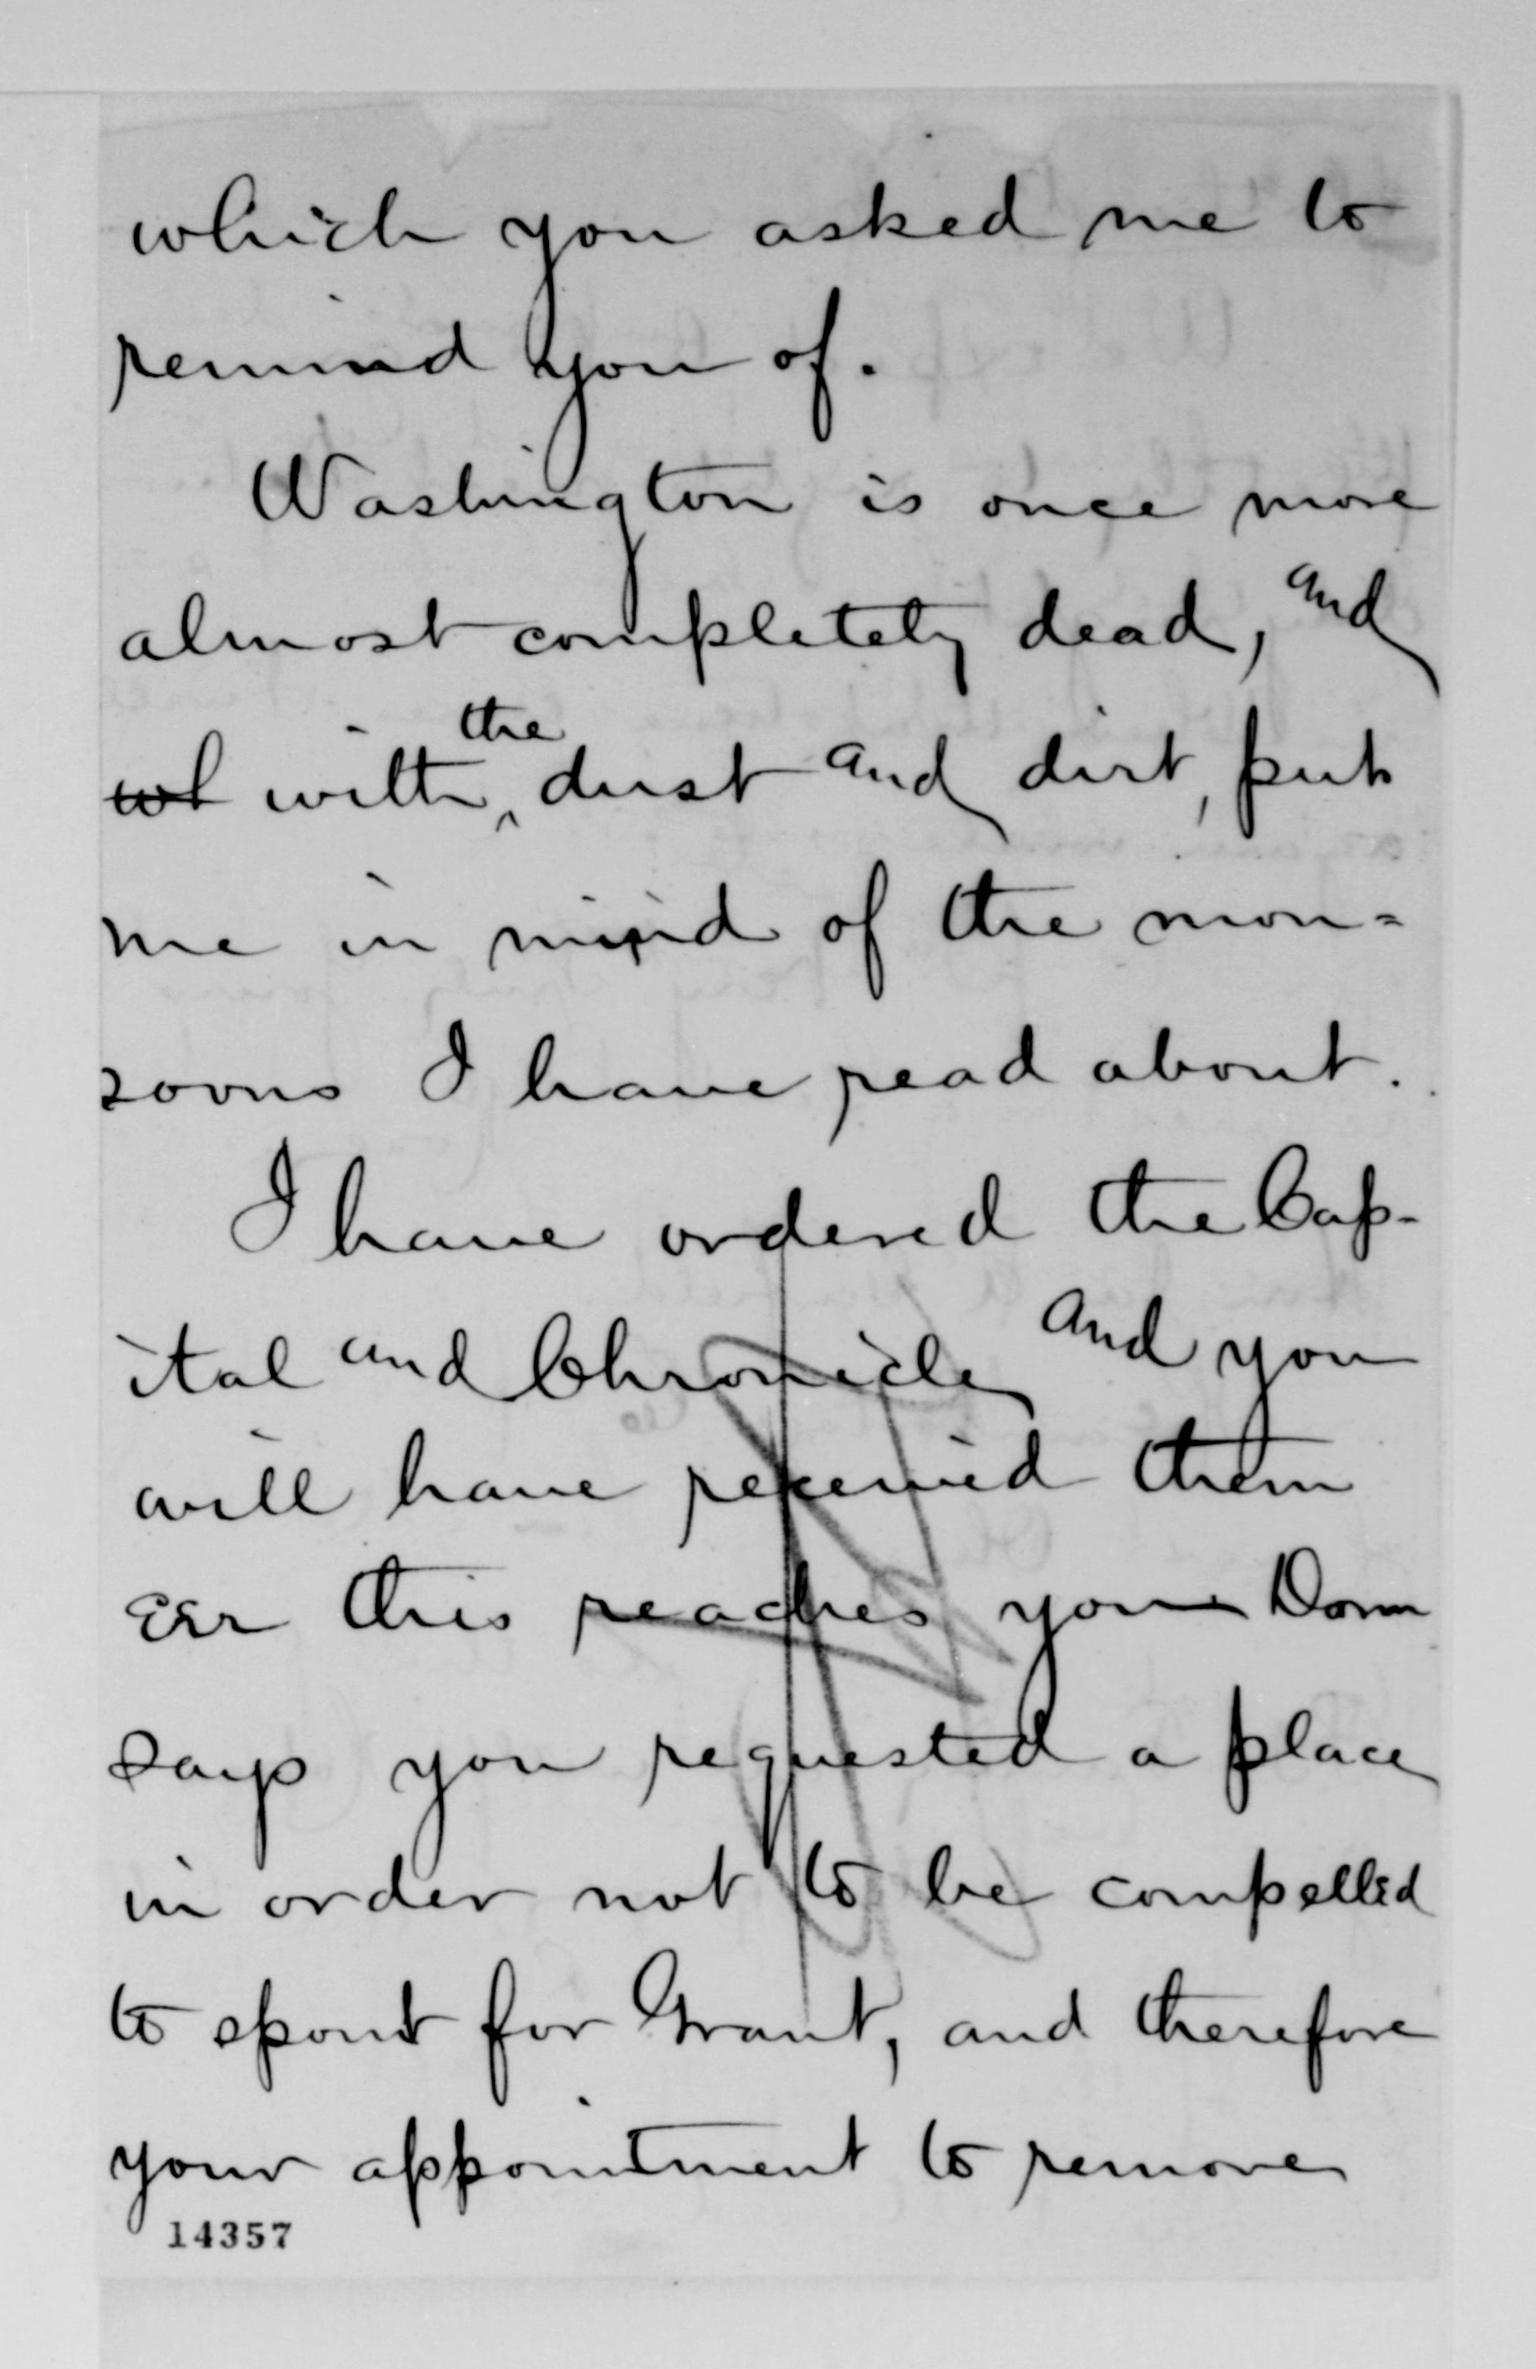 which you asked me to
remind you of.
Washington is once more
almost completely dead, and
wh with the dust and dirt, puts
me in mind of the mon=
soons I have read about.
I have ordered the Cap-
ital and Chronicle and you
will have received them
ere this reaches you. Donn
says you requested a place
in order not to be compelled
to spout for Grant, and therefore
your appointment to remove
14357